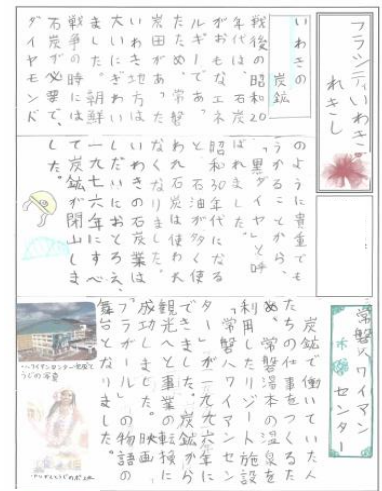 フラシティいわき
れきし
いわきの
炭鉱
戦後の昭和20
年代は、石炭
がおもなエネ
ルギーであっ
たため、常磐
炭田があった
いわき地方は
大いにぎわい
ました。朝鮮
戦争の時には
石炭が必要で、
ダイヤモンド
のように貴重でも
うかることから、
「黒ダイヤ」と呼
ばれました。
昭和30年代になる
と、石油が多く使
われ石炭は使われ
なくなりました。
いわきの石炭業は
しだいにおとろえ、
一九七六年にすべ
て炭鉱が閉山しま
した。
常磐ハワイアン
センター
炭鉱で働いていた人
たちの仕事をつくるた
め、常磐湯本の温泉を
利用したリゾート施設
「常磐ハワイアンセン
ター」が一九九六年に
できました。炭鉱から
観光へと事業の転換に
成功しました。映画
「フラガール」の物語の
舞台となりました。
ハワイアンセンター
うじの写真